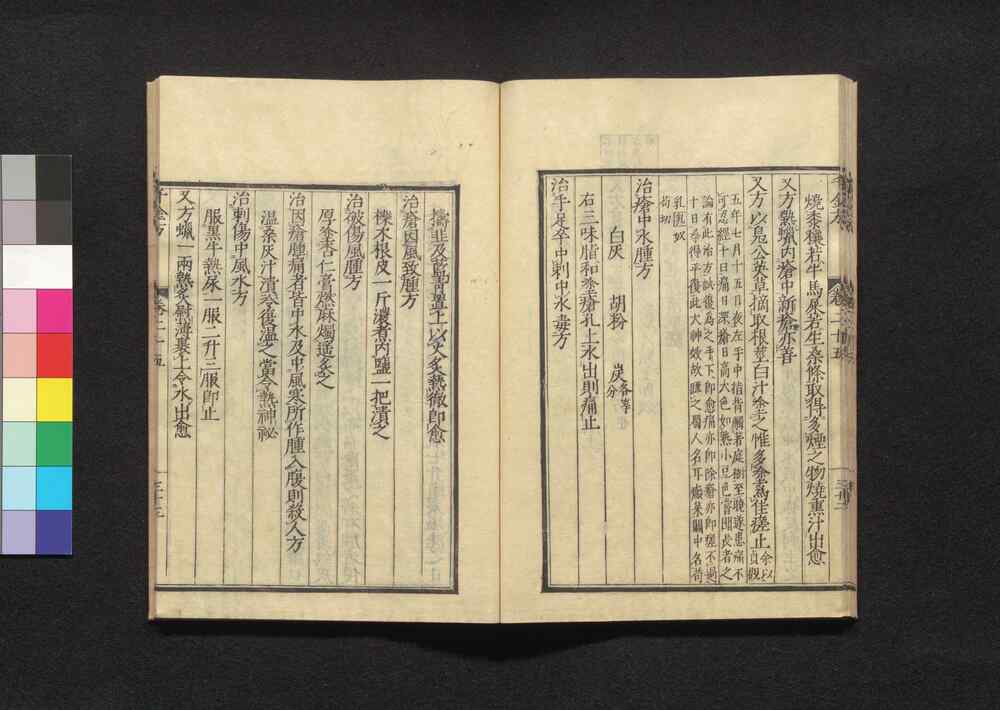 燒黍穰若牛馬屎若生桑條取得多煙之物燒熏汁出愈
又方熱蠟內瘡中新瘡亦善
又方以鳧公英草摘取根莖白汁塗之惟多塗為佳瘥止余以貞觀
五年七月十五日夜左手中指背觸著庭樹至曉遂患痛不
可忍經十日痛日深瘡日高大色如熟小豆色嘗聞長者之
論有此治方試復為之手下即愈痛亦即除瘡亦即瘥不過
十日尋得平復此大神效故疏之蜀人名耳瘢菜關中名苟
乳
治瘡中水腫方
白灰 胡粉 炭各等分
右三味脂和塗瘡孔上水出則痛止
治手足卒中刺中水毒方
擣韭及藍青置上以火炙熱徹即愈
治瘡因風致腫方
櫟木根皮一斤濃煮內鹽一把漬之
治破傷風腫方
厚塗杏仁膏燃麻燭遙炙之
治因瘡腫痛者皆中水及中風寒所作腫入腹則殺人方
溫桑灰汁漬冷復溫之當令熱神祕
治刺傷中風水方
服黑牛熱尿一服二升三服即止
又方蠟一兩熱炙熨薄裹上令水出愈
千金方 卷二十五 三十三